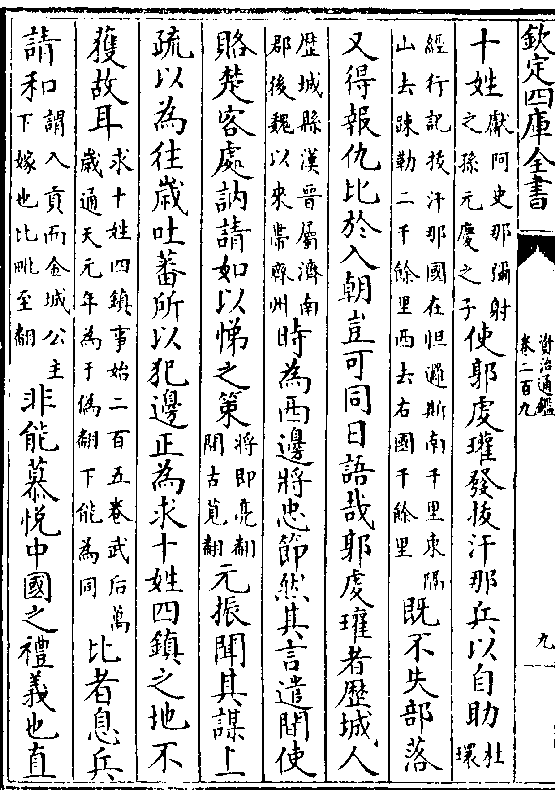 欽定四庫全書
資治通鑑
卷二百九
九
十姓獻阿史那彌射之孫元慶之子使郭虔瓘發拔汗那兵以自助杜環
經行記拔汗那國在怛邏斯南千里東隔山去疎勒二千餘里西去右國千餘里既不失部落
又得報仇比於入朝豈可同日語哉郭虔瓘者歷城人
歷城縣漢晉屬濟南郡後魏以來帶齊州時為西邊將忠節然其言遣間使
賂楚客處訥請如以悌之策將即亮翻間古莧翻元振聞其謀上
疏以為往歲吐蕃所以犯邊正為求十姓四鎮之地不
獲故耳求十姓四鎮事始二百五卷武后萬歲通天元年為于偽翻下能為同比者息兵
請和謂入貢而金城公主下嫁也比毗至翻非能慕悅中國之禮義也直